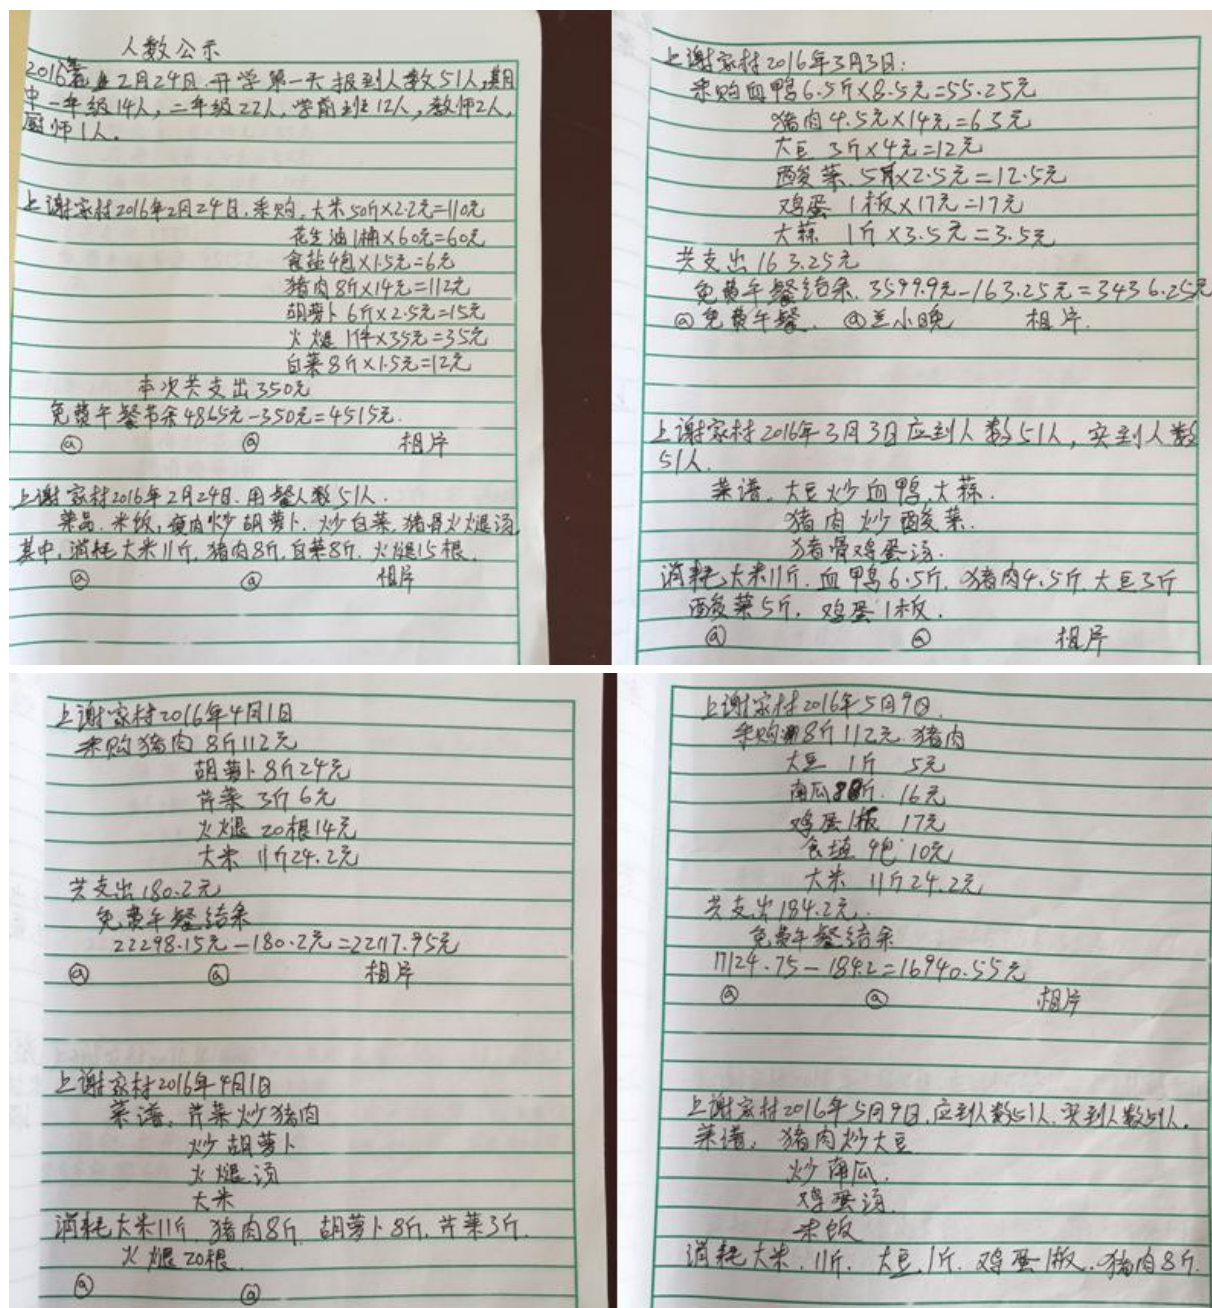 人数公示
2016年2月24日.开学第一天报到人数51人,其
中一年级14人,二年级22人,学前班12人,教师2人,
厨师1人.
上谢家村2016年2月24日.采购.大米50斤×2.2元=110元
花生油1桶×60元=60元
食盐4包×1.5元=6元
猪肉8斤×14元=112元
胡萝卜6斤×2.5元=15元
火腿1件×35元=35元
白菜8斤×1.5元=12元
本次共支出350元
免费午餐节余4865元-350元=4515元.
@ @ 相片
上谢家村2016年2月24日.用餐人数51人.
菜品.米饭,瘦肉炒胡萝卜.炒白菜.猪骨火火腿汤
其中,消耗大米11斤,猪肉8斤,白菜8斤.火腿15根.
@ @ 相片
上谢家村2016年3月3日:
采购血鸭6.5斤×8.5元=55.25元
猪肉4.5元×14元=63元
大豆 3斤×4元=12元
酸菜.5斤×2.5元=12.5元
鸡蛋 1板×17元=17元
大蒜 1斤×3.5元=3.5元
共支出163.25元
免费午餐结余.3599.9元-163.25元=3436.25元
@免费午餐. @兰小晚 相片.
上谢家村2016年3月3日应到人数51人,实到人数
51人.
菜谱.大豆炒血鸭.大蒜.
猪肉炒酸菜.
猪骨鸡蛋汤.
消耗大米11斤.血鸭6.5斤.猪肉4.5斤.大豆3斤
酸菜5斤.鸡蛋1板.
@ @ 相片
上谢家村2016年4月1日
采购猪肉 8斤112元
胡萝卜8斤24元
芹菜 3斤6元
火腿 20根14元
大米 11斤24.2元
共支出180.2元
免费午餐结余
22298.15元-180.2元=22117.95元
@ @ 相片
上谢家村2016年4月1日
菜谱.芹菜炒猪肉
炒胡萝卜
火腿汤
大米
消耗大米11斤.猪肉8斤.胡萝卜8斤.芹菜3斤.
火腿20根.
@ @
上谢家村2016年5月9日.
采购8斤112元 猪肉
大豆 1斤 5元
南瓜8斤.16元
鸡蛋1板 17元
食盐 4包10元
大米 11斤24.2元
共支出184.2元.
免费午餐结余
17124.75-184.2=16940.55元
@ @ 相片
上谢家村2016年5月9日.应到人数51人.实到人数51人.
菜谱.猪肉炒大豆
炒南瓜.
鸡蛋汤.
米饭
消耗大米.11斤.大豆.1斤.鸡蛋1板.猪肉8斤.